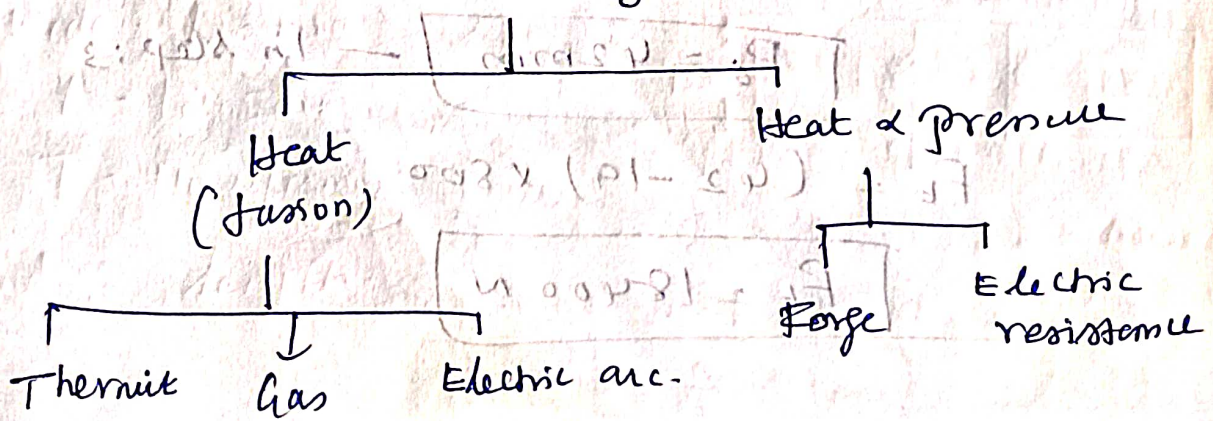 Heat
(fusson)
Heat & pressure
Thermit
Gas
Electric arc.
Forge
Electric
resistance